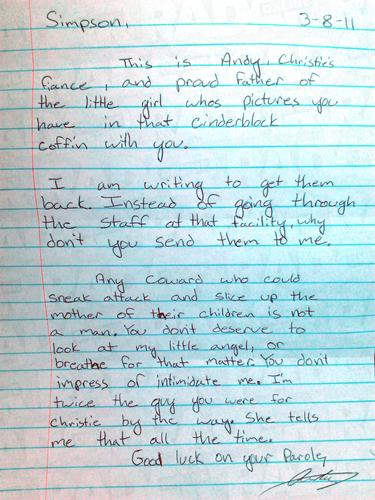 Simpson, 3-8-11
This is Andy, Christie's
fiance, and proud father of
the little girl whos pictures you
have in that cinderblock
coffin with you.
I am writing to get them
back. Instead of going through
the staff at that facility, why
don't you send them to me.
Any coward who could
sneak attack and slice up the
mother of their children is not
a man. You don't deserve to
look at my little angel, or
breathe for that matter. You don't
impress of intimidate me. I'm
twice the guy you were for
christie by the way. She tells
me that all the time.
Good luck on your Parole,